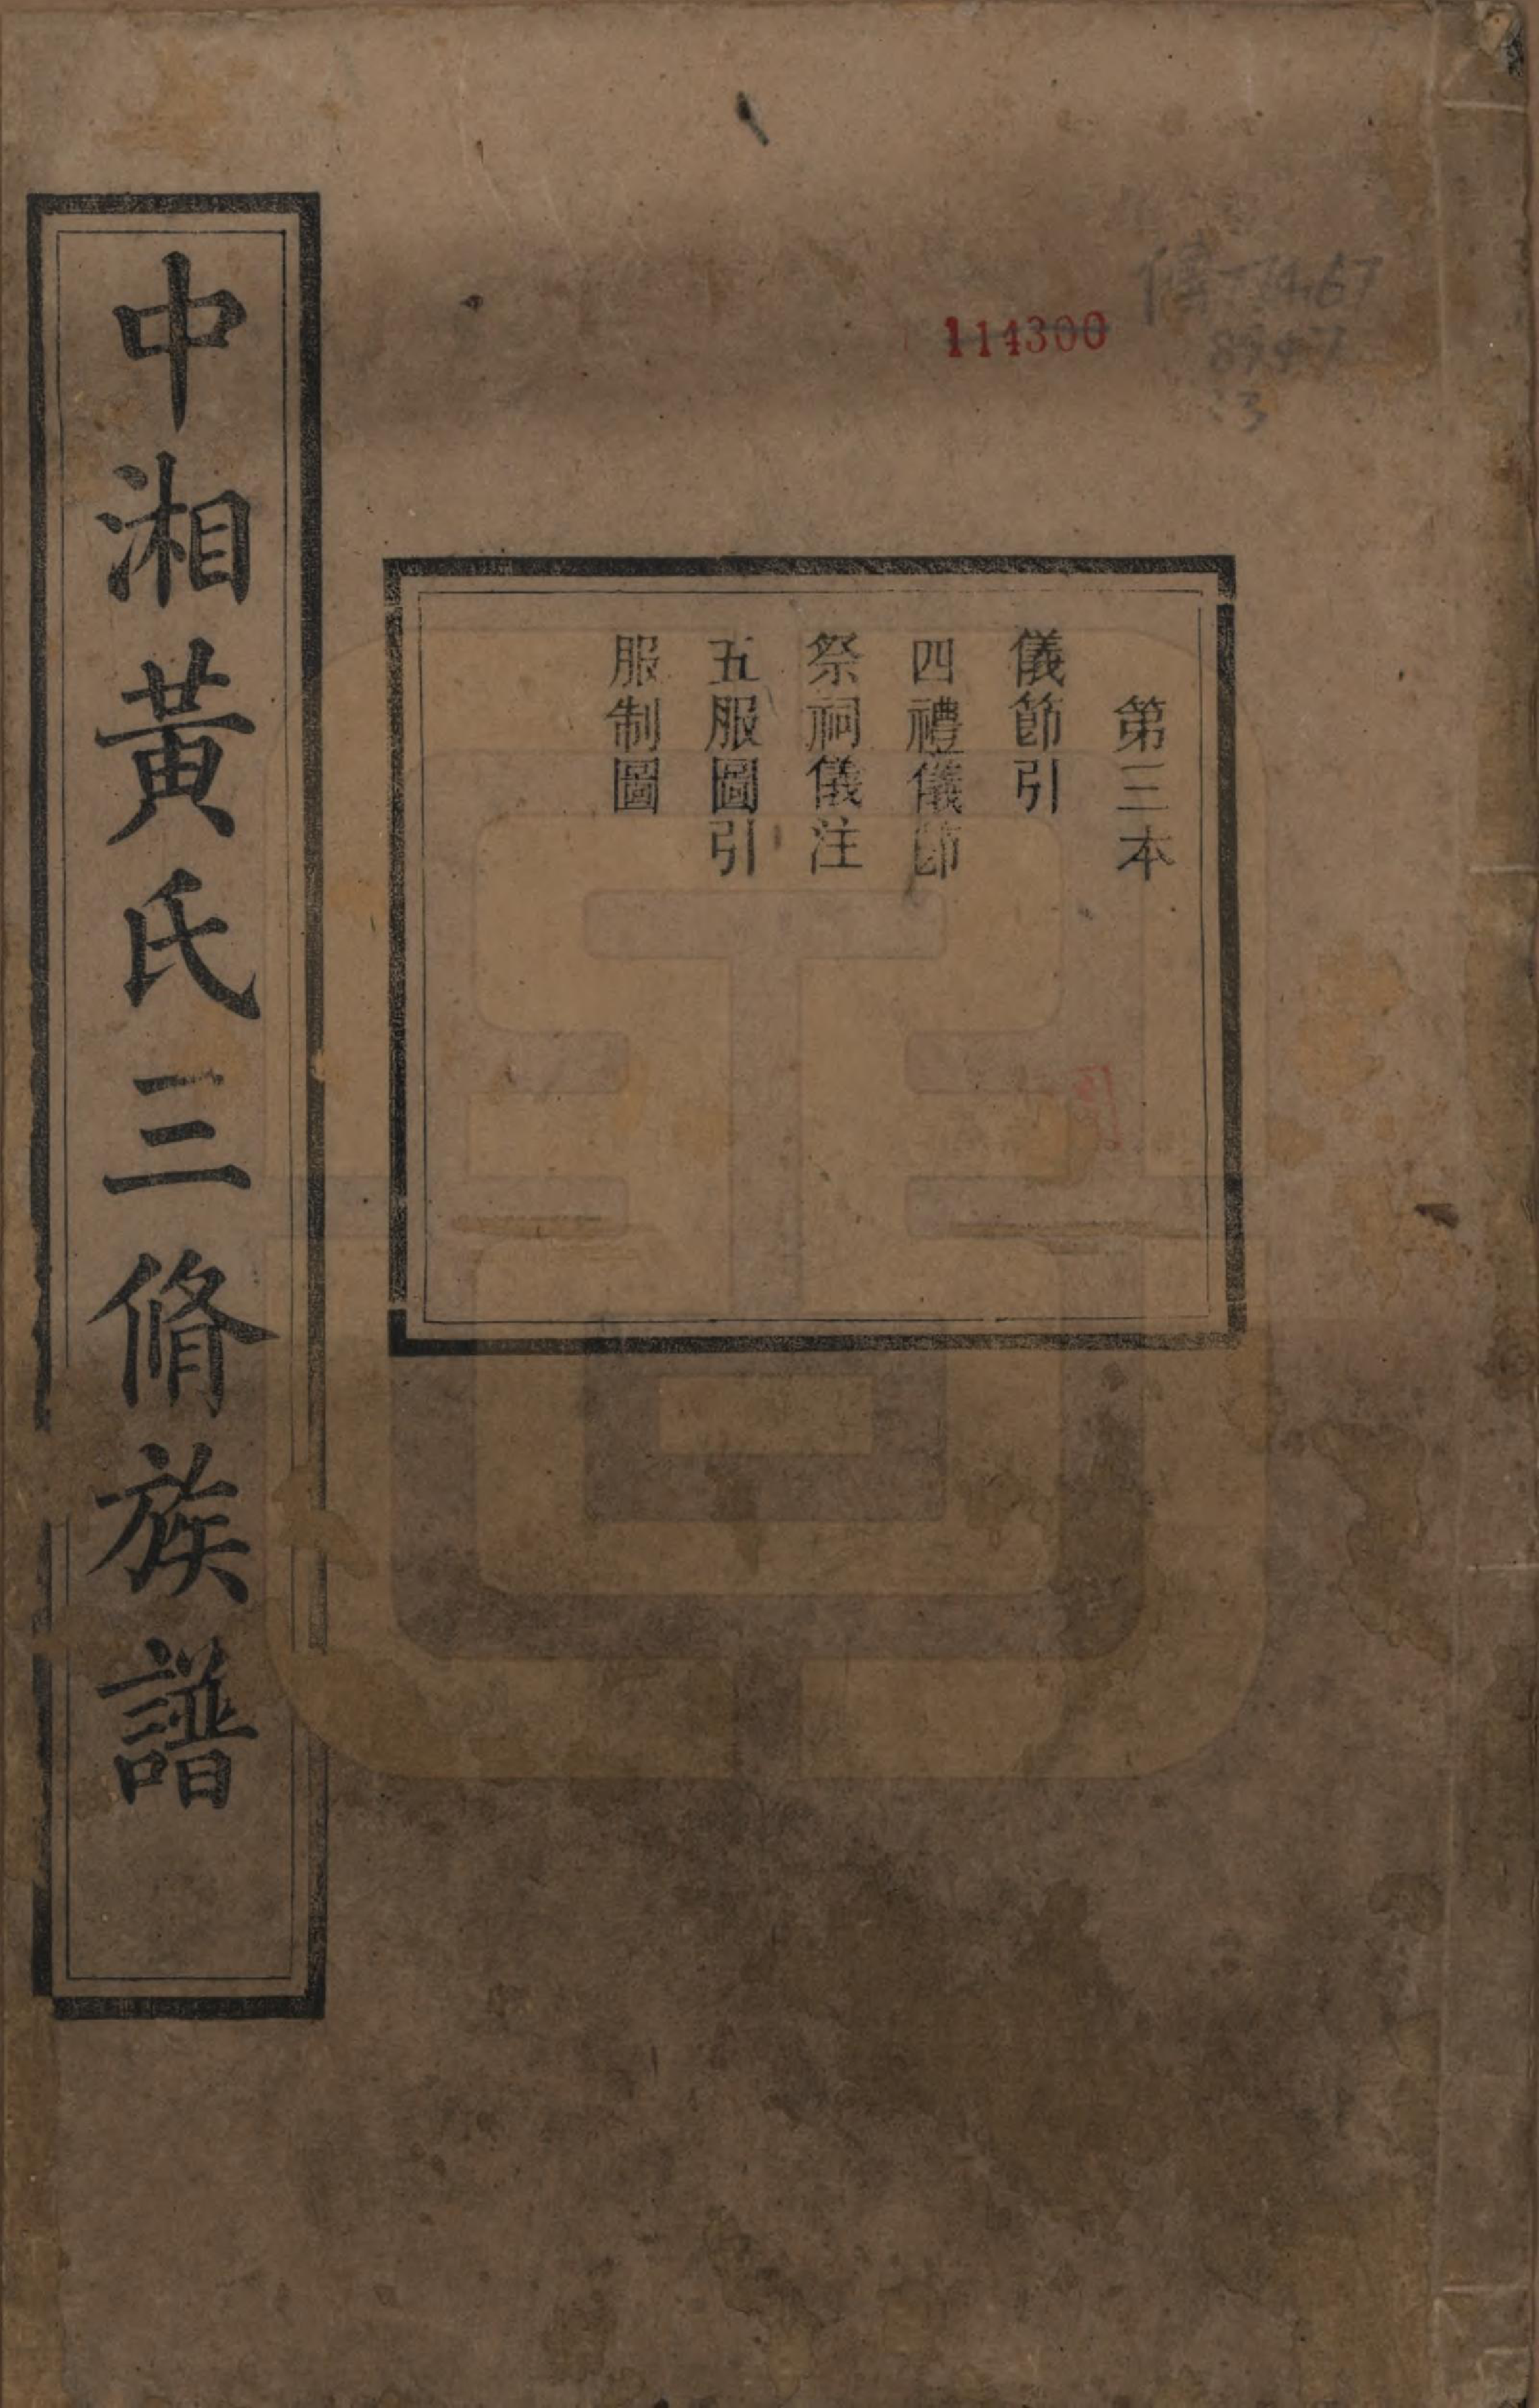 114300
第三本
儀節引
四禮儀節
祭祠儀注
五服圖引
服制圖
中湘黃氏三脩族譜